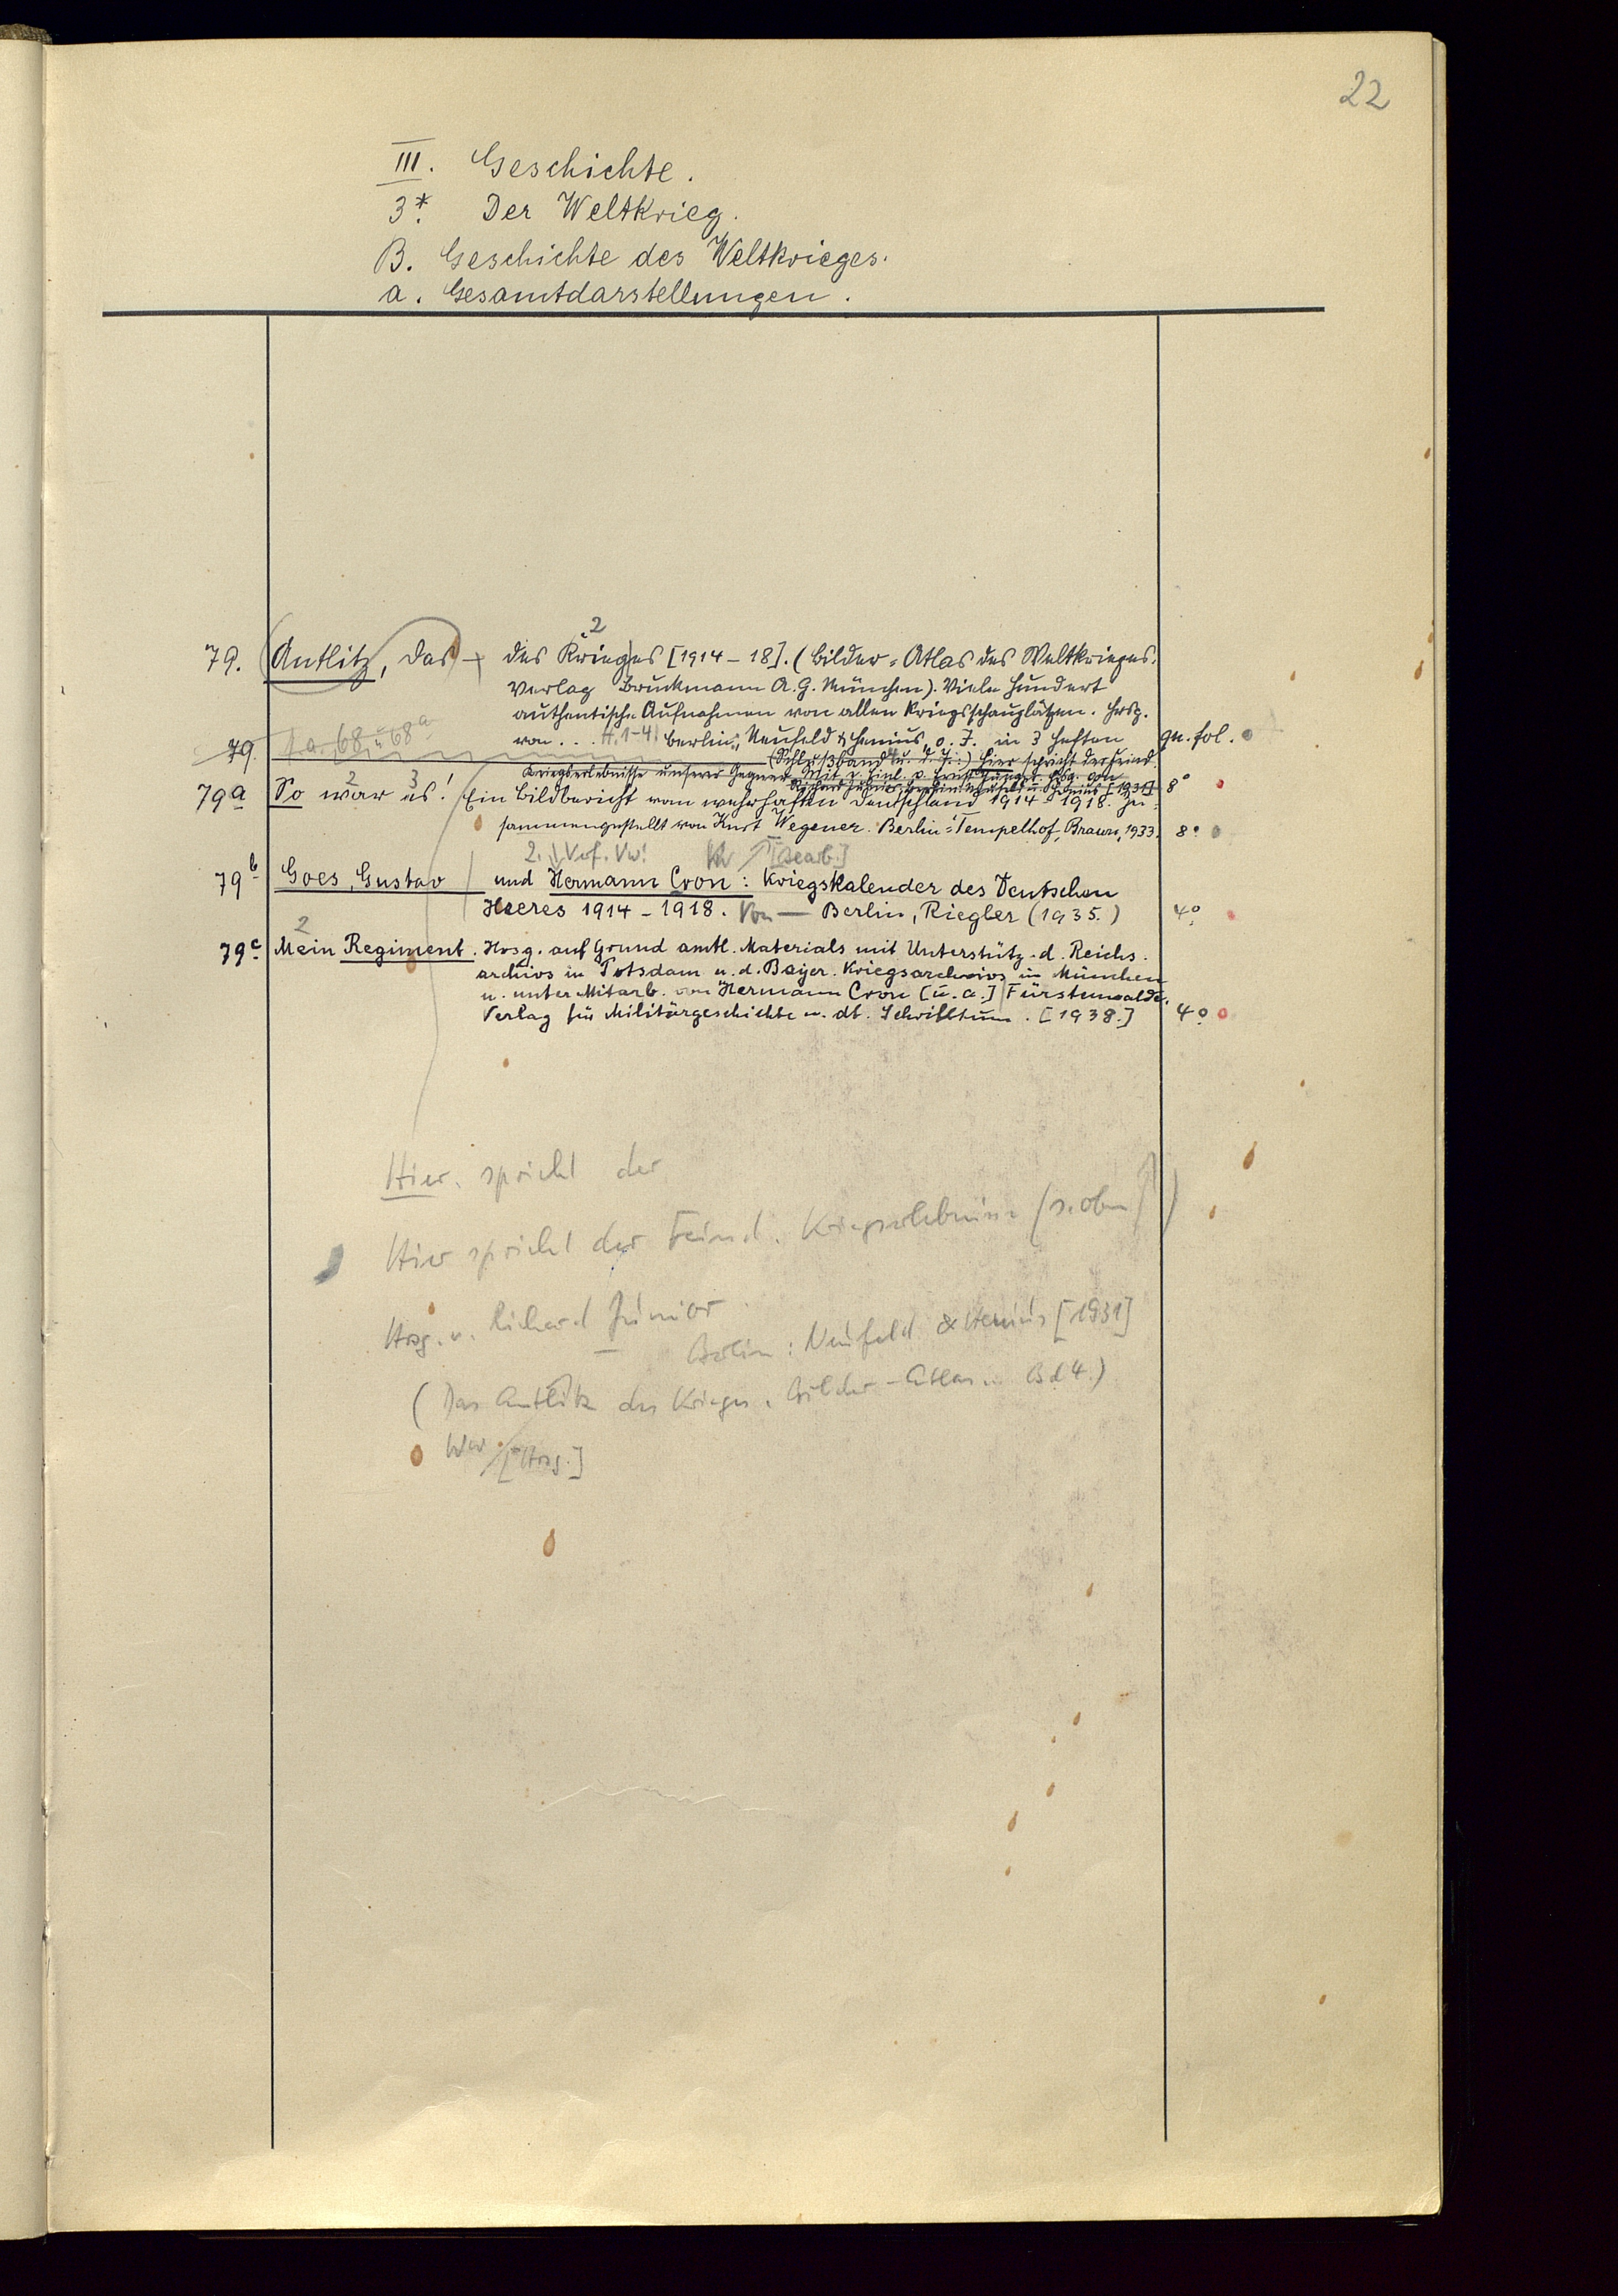 22
III. Geschichte.
3*. Der Weltkrieg.
B. Geschichte des Weltkrieges.
a. Gesamtdarstellungen.
2
79. Antlitz, Das — des Krieges [1914-18]. (Bilder-Atlas des Weltkrieges.
Verlag Bruckmann A.G. München). Viele hundert
authentische Aufnahmen von allen Kriegsschauplätzen. Hrsg.
von... H. 1-4! Berlin: Neufeld & Henius, o. J. in 3 Heften qu. fol.
79. 68 u 68a
(Schlußband u. d. T.:) Hier spricht der Feind.
Kriegserlebnisse unserer Gegner. Mit e. Einl. v. Ernst Jünger. Hsg. von
Richard Junior, Berlin: Neufeld u. Henius [1931] 8°
2 3
79a So war es! Ein Bildbericht vom wehrhaften Deutschland 1914-1918. Zu-
sammengestellt von Kurt Wegener. Berlin-Tempelhof, Braun, 1933. 8°
2. Verf. Vw! [Bearb.]
79b Goes, Gustav und Hermann Cron: Kriegskalender des Deutschen
Heeres 1914-1918. Von — Berlin, Riegler (1935.) 4°
2
79c Mein Regiment. Hrsg. auf Grund amtl. Materials mit Unterstütz. d. Reichs-
archivs in Potsdam u. d. Bayer. Kriegsarchivs in München
u. unter Mitarb. von Hermann Cron [u. a.] Fürstenwalde.
Verlag für Militärgeschichte u. dt. Schrifttum. [1938.] 4°
Hier. spricht der
Hier spricht der Feind. Kriegserlebnisse (s. oben)
Hrsg. v. Richard Junior
Berlin: Neufeld & Henius [1931]
(Das Antlitz des Krieges. Bilder-Atlas. Bd 4.)
Vw [Hrsg.]